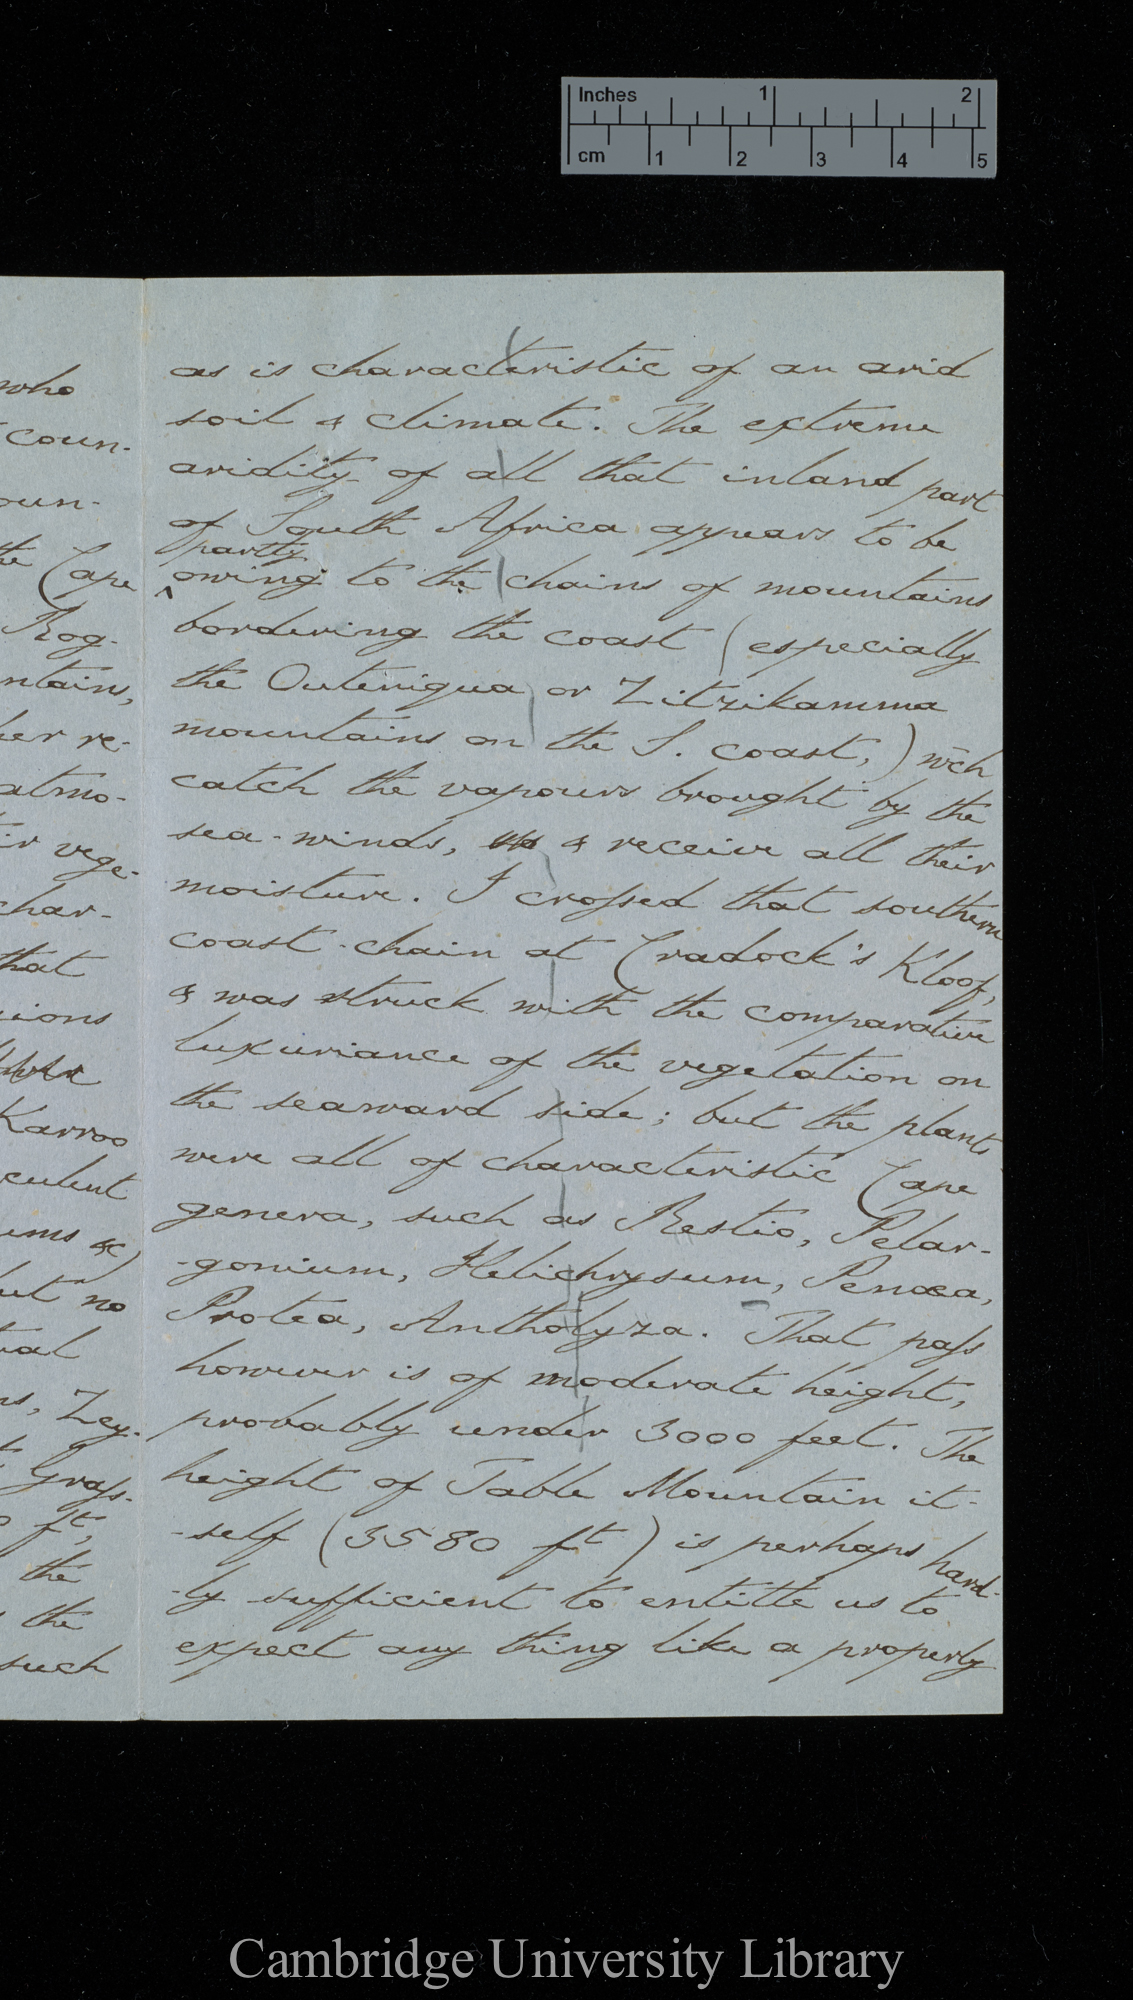 Inches 1 2
cm 1 2 3 4 5
who
coun-
oun-
the Cape
Rog-
ntains,
her re-
atmo-
ir vege-
char-
that
ions
Karroo
culent
ums &c)
but no
ial
ns, Zey-
Grass-
ft,
the
the
such
as is characteristic of an arid
soil & climate. The extreme
aridity of all that inland part
of South Africa appears to be
partly
^owing to the chains of mountains
bordering the coast (especially
the Outeniqua or Zitzikamma
mountains on the S. coast,) wch
catch the vapours brought by the
sea-winds, & receive all their
moisture. I crossed that southern
coast-chain at Cradock's Kloof,
& was struck with the comparative
luxuriance of the vegetation on
the seaward side; but the plants
were all of characteristic Cape
genera, such as Restio, Pelar-
-gonium, Helichrysum, Penæa,
Protea, Antholyza. That pass
however is of moderate height,
probably under 3000 feet. The
height of Table Mountain it-
-self (3580 ft) is perhaps hard-
-ly sufficient to entitle us to
expect any thing like a properly
Cambridge University Library